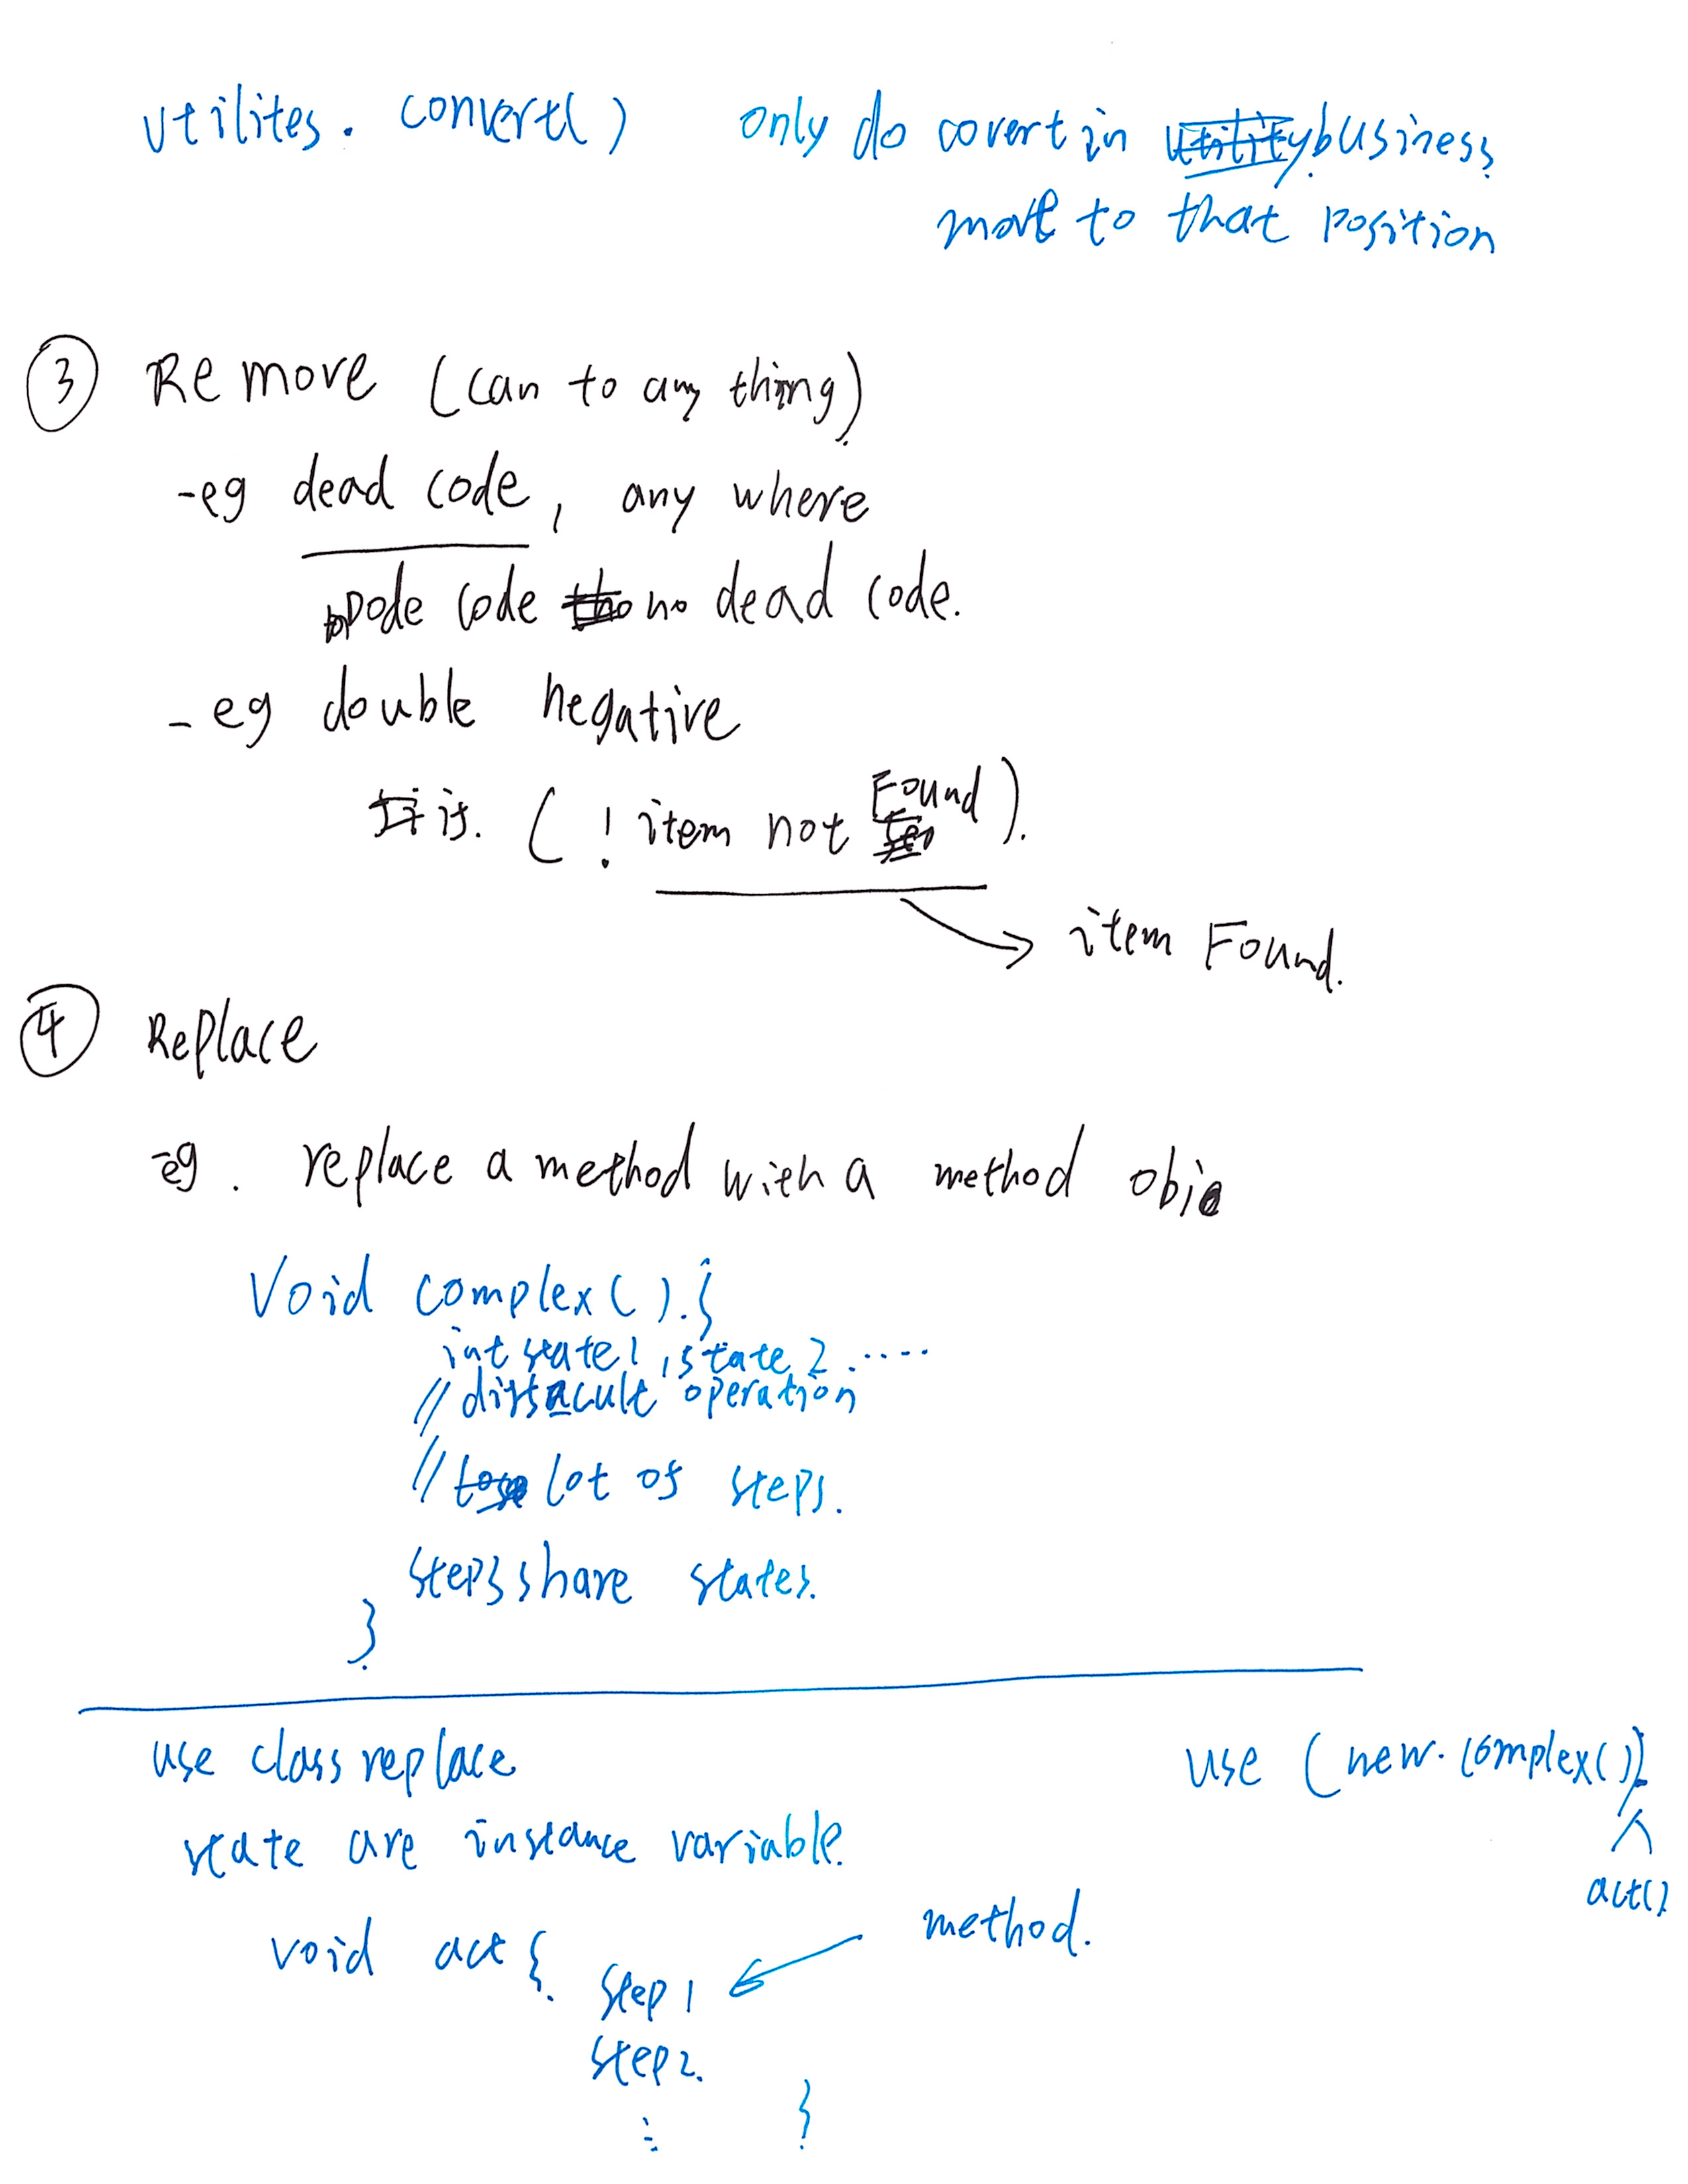 utilites. convert() only do covert in business
move to that position
③ Remove (can to any thing)
-eg dead code, any where
code no dead code.
- eg double negative
if. ( ! item not Found ).
item Found.
④ Replace
eg. replace a method with a method obje
void complex( ).{
int state1, state2.....
// difficult operation
// lot of steps.
steps share states.
}
use class replace use (new. complex( )).
state are instance variable. act()
void act {. method.
step 1
step2.
: }